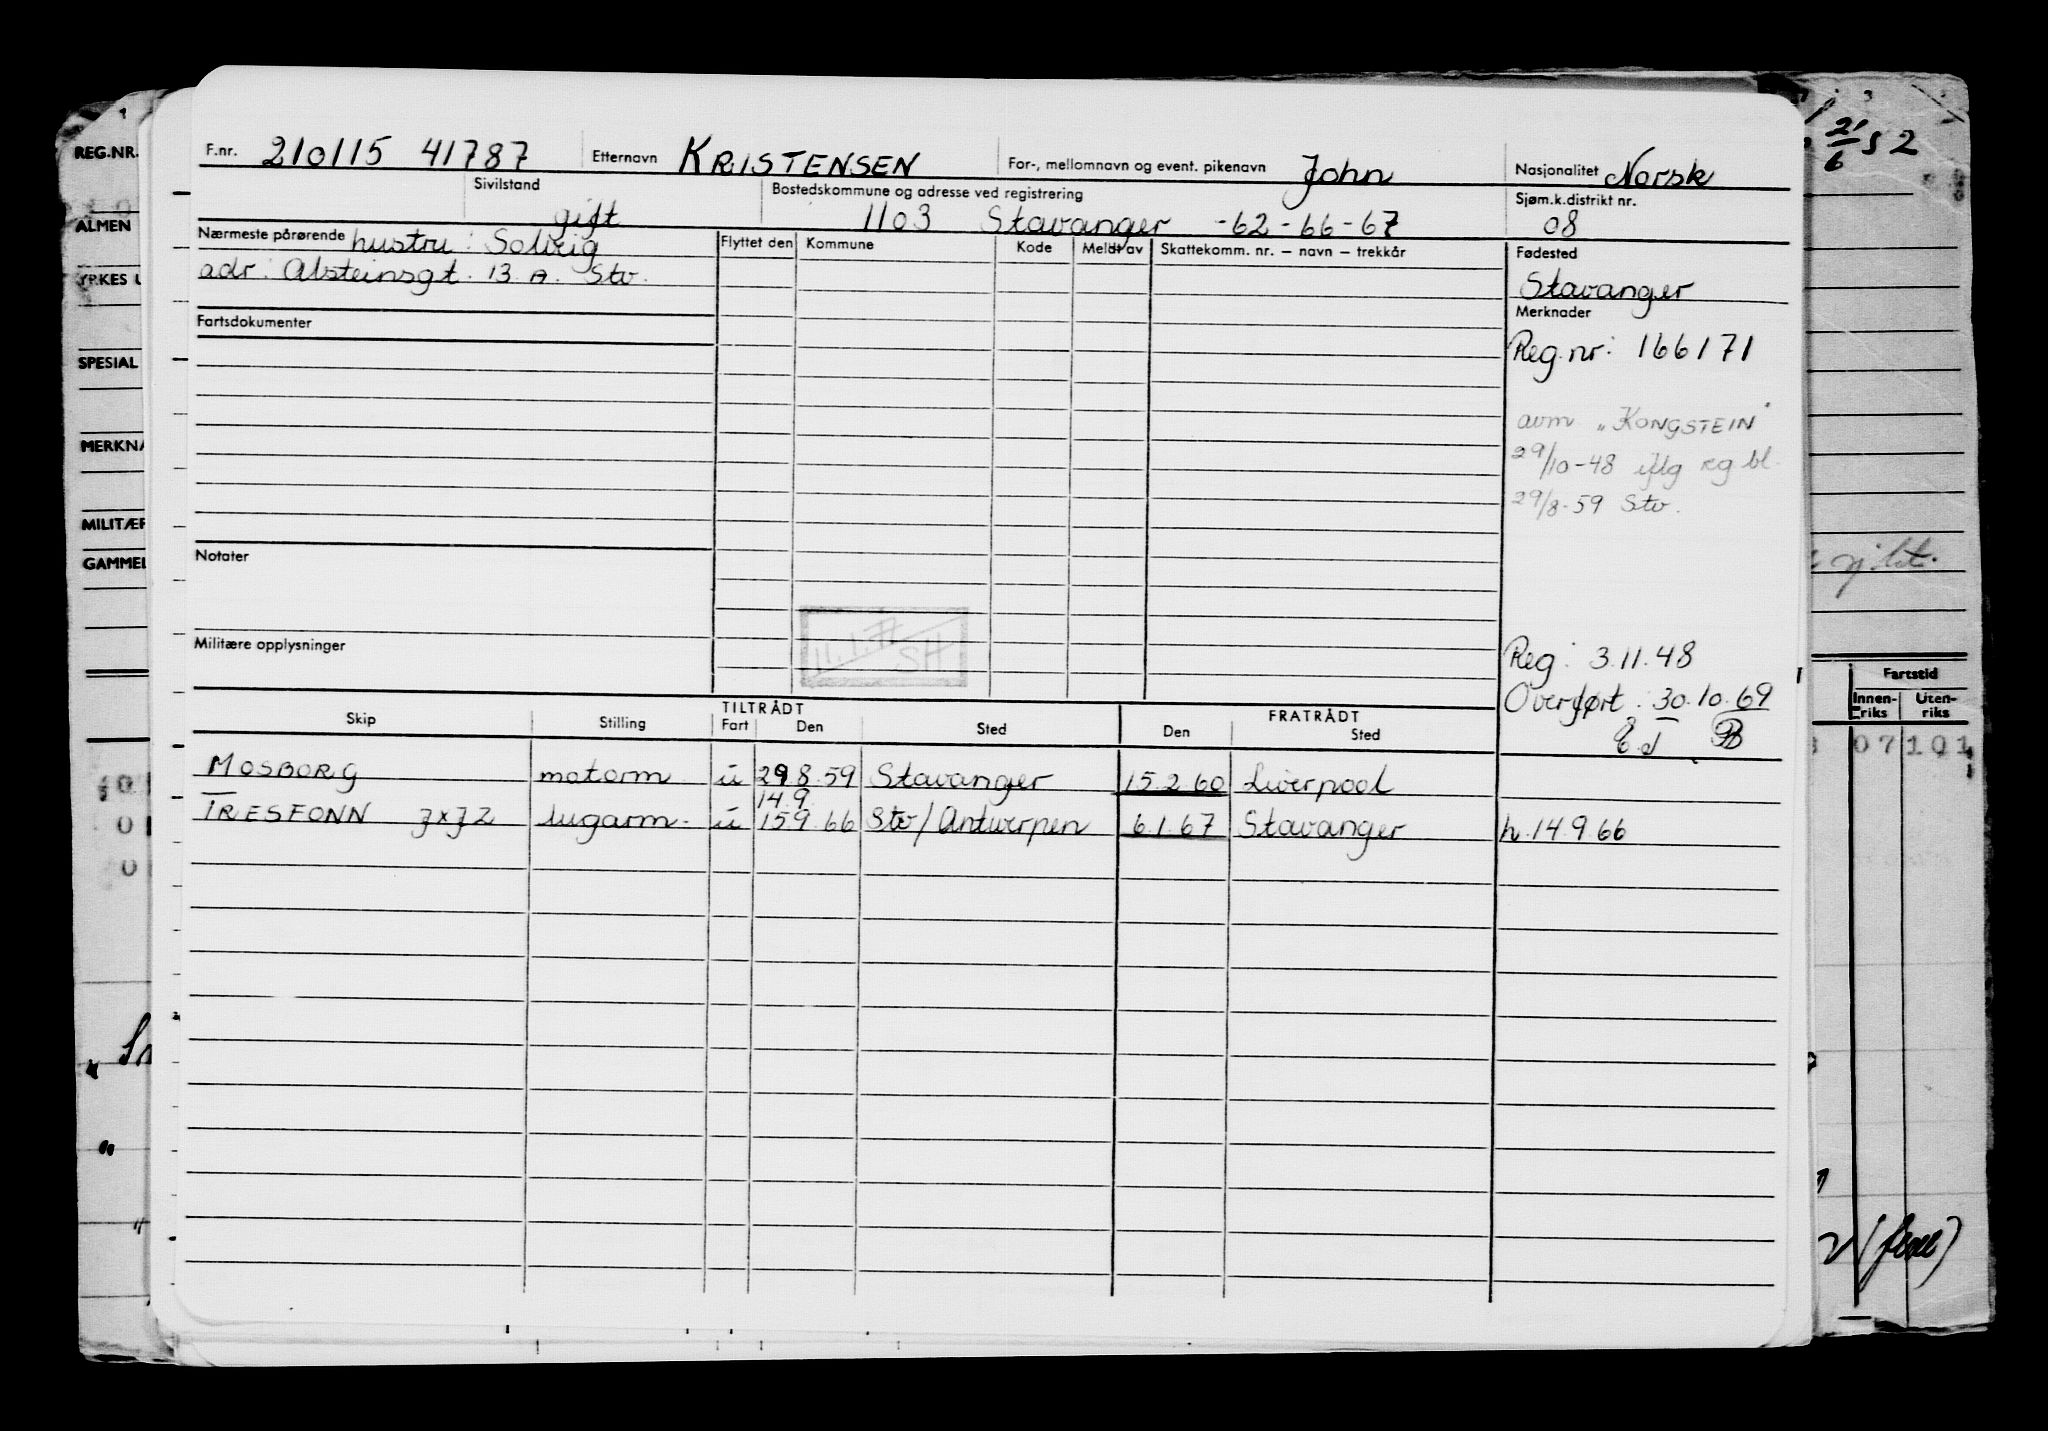 F.nr. 210115 41787 Etternavn KRISTENSEN For-, mellomnavn og event. pikenavn John Nasjonalitet Norsk
Sivilstand gift Bostedskommune og adresse ved registrering 1103 Stavanger -62-66-67 Sjøm.k.distrikt nr. 08
Nærmeste pårørende hustru: Solveig
adr: Alsteinsgt. 13 A. Stv.
Flyttet den Kommune Kode Meldt av Skattekomm. nr. – navn – trekkår
Fødested
Stavanger
Fartsdokumenter
Merknader
Reg.nr: 166171
avm. „KONGSTEIN"
29/10-48 iflg reg bl.
29/8-59 Stv.
Notater
Militære opplysninger
11.1.77
SH
Reg: 3.11.48
Overført: 30.10.69
TILTRÅDT FRATRÅDT
Skip Stilling Fart Den Sted Den Sted
MOSBORG motorm u 29 8.59 Stavanger 15.2.60 Liverpool
14.9.
TRESFONN lugarm. u 15.9.66 Stv/Antwerpen 6.1.67 Stavanger h.14.9.66
REG.NR.
ALMEN
YRKES U
SPESIAL
MERKNA
MILITÆR
GAMMEL
21/6 52
Fartstid
Innen-
riks
Uten-
riks
07 101